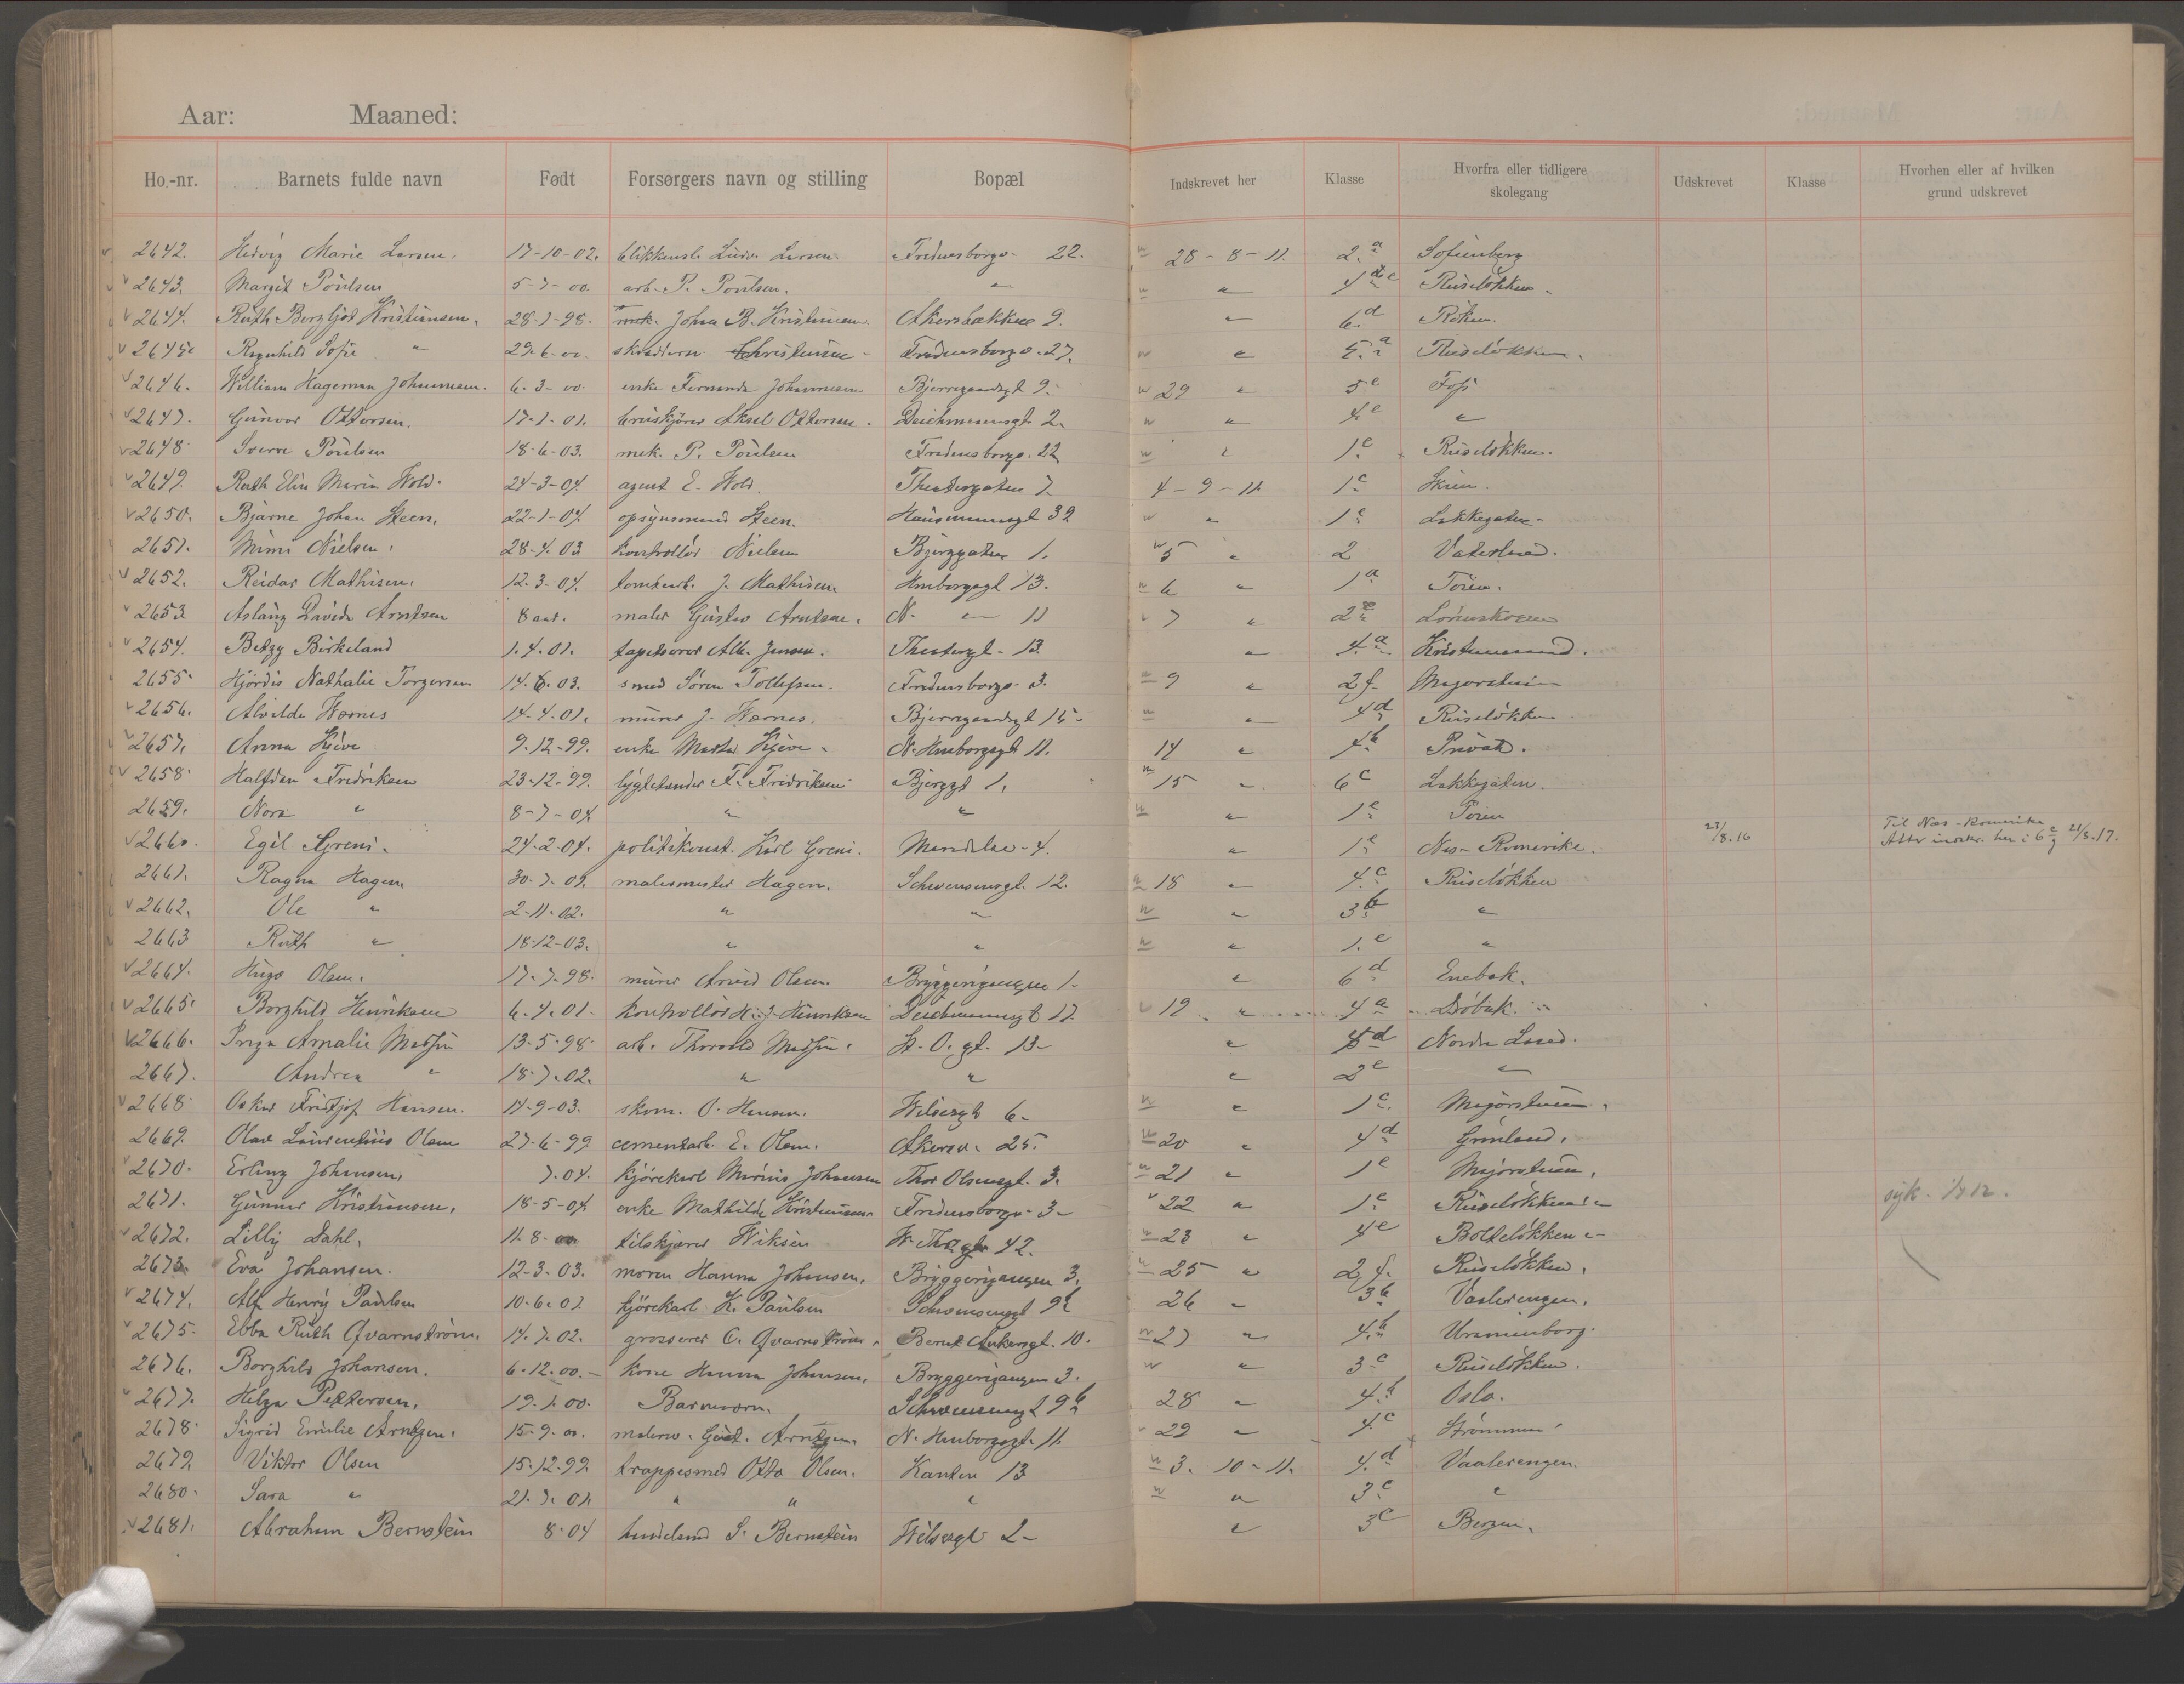 Aar: Maaned:
Ho.-nr. Barnets fulde navn Født Forsørgers navn og stilling Bopæl Indskrevet her Klasse Hvorfra eller tidligere skolegang Udskrevet Klasse Hvorhen eller af hvilken grund udskrevet
2642. Hedvig Marie Larsen. 17-10-02. blikkensl. Larsen Fredensborgv. 22. 28-8-11. 2.a Sofienberg
2643. Margit Poulsen 5-7-00. arb. P. Poulsen. " " " Ruseløkken.
2644. Ruth Bergljot Kristiansen. 28-1-98. Johan B. Kristiansen. Akersbakken 9. " 6.d Røken.
2645. Ragnhild Sofie " 29-6-00. Christensen Fredensborgv. 27. " " 5.a Ruseløkken.
2646. William Hageman Johannesen. 6-3-00. enke Fernanda Johannesen Bjerregaardsgt 9. 29 " 5e Foss
2647. Gunvor Ottersen. 17-1-01. Aksel Ottersen. Deichmannsgt. 2. " " 4.e "
2648 Sverre Poulsen 18-6-03. mek. P. Poulsen Fredensborgv. 22 " " 1e Ruseløkken.
2649. Ruth Elin Maria Wold. 24-3-04. agent E. Wold. Theatergaten 7. 4-9-11. 1c Skien.
2650. Bjarne Johan Steen. 22-1-04. opsynsmand Steen. Hausmannsgt 39 " " 1e Lakkegaten.
2651. Mimi Nielsen. 28-4-03 kontrollør Nielsen Bjerggaten 1. 5 " 2 Vaterland.
2652. Reidar Mathisen. 12-3-04. tomtearb. J. Mathisen Humborggt 13. 6 " 1a Tøien.
2653 Aslaug Davida Arntzen 8 aar. maler Gustav Arntzen. N. " 11 7 " 2e Lørenskogen
2654. Betzy Birkeland 1.4.01. tapetserer Alb. Jensen. Theatergt. 13. " 4.a Kristiansand.
2655. Hjørdis Nathalie Torgersen 14.6.03. smed Søren Tollefsen. Fredensborgv. 3. 9 " 2f. Majorstuen
2656. Alvilde Wernes 14.4.01. murer J. Wernes. Bjerregaardsgt 15. " " 4d Ruseløkken
2657. Anna Kjeve 9.12-99. enke Kjeve. N. Humborggt 11. 14 " Privat.
2658. Halfdan Fredriksen 23-12-99. lygtetænder F. Fredriksen Bjerggt 1. 15 " 6c Lakkegaten.
2659. Nora " 8-7-04 " " " " 1e Tøien
2660. Egil Greni. 24.2.04. politikonst. Karl Greni. Maridalsv. 4. " 1e Nes-Romerike. 23/8.16 Til Nes-Romerike Atter indskr. her i 6 21/8.17.
2661. Ragna Hagen, 30-7-01. malermester Hagen. Schwensensgt. 12. 18 " 4.c Ruseløkken
2662. Ole " 2-11-02. " " " " 3b "
2663 Ruth " 18-12-03. " " " " 1.e "
2664. Hugo Olsen. 17-7-98. murer Arvid Olsen. Bryggerigangen 1. " 6d Enebak.
2665. Borghild Henriksen 6.4.01. kontrollør H. J. Henriksen Deichmannsgt 17. 19 " 4a Drøbak.
2666. Inga Amalie Madsen 13-5-98. arb. Thorvald Madsen. St. O. gt. 13. " d Nordre Land.
2667. Andrea " 18-7.02. " " " 2e "
2668. Oskar Fritjof Hansen. 14-9-03. skom. O. Hansen. Wilsesgt 6. " " 1c Majorstuen.
2669. Olav Laurentius Olsen 27-6-99 cementarb. E. Olsen. Akersv. 25. 20 " 4d Grønland.
2670. Erling Johansen. 7.04. kjørekarl Marius Johansen Thor Olsensgt. 3. 21 " 1e Majorstuen.
2671. Gunnar Kristiansen. 18-5-04. enke Mathilde Kristiansen. Fredensborgv. 3. 22 " 1e Ruseløkken syk.
2672. Lilly Dahl. 11-8-00 tilskjærer Eriksen W. Thr. gt. 42. 23 " 4e Bolteløkken
2673. Eva Johansen. 12-3.03. moren Hanna Johansen. Bryggerigangen 3. 25 " 2f. Ruseløkken.
2674. Alf Henry Paulsen 10.6.01. kjørekarl K. Paulsen Schwensensgt 9b 26 " 3b Vaalerengen.
2675. Ebba Ruth Qvarnstrøm. 14.7.02. grosserer C. Qvarnstrøm. Bernt Ankersgt. 10. 27 " 4.b Uranienborg.
2676. Borghild Johansen. 6.12.00. kone Hanna Johansen. Bryggerigangen 3. " " 3c Ruseløkken.
2677. Helga Pettersen. 19.1.00. Barnevern. Schwensensgt 9b 28 " 4.b Oslo.
2678. Sigrid Emilie Arntzen. 15-9.00. malerm. Gust. Arntzen. N. Humborggt. 11. 29 " 4.c Strømmen
2679. Viktor Olsen 15.12.99. trappesmed Otto Olsen. Kanten 13 3. 10-11. 4.d Vaalerengen.
2680. Sara " 21.7.01 " " " " " 3c "
2681. Abraham Bernstein 8.04 handelsmd S. Bernstein Wilsesgt 2. " 3c Bergen.